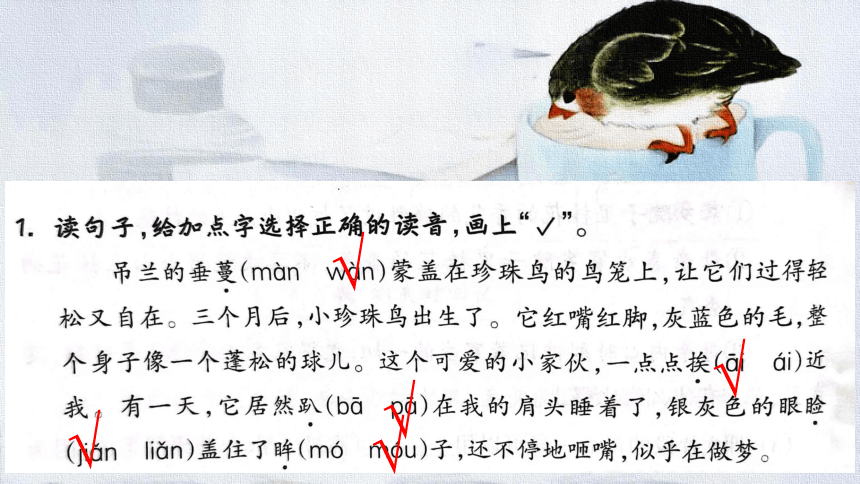 1. 读句子,给加点字选择正确的读音,画上“✓”。
吊兰的垂蔓(màn wàn)蒙盖在珍珠鸟的鸟笼上,让它们过得轻
松又自在。三个月后,小珍珠鸟出生了。它红嘴红脚,灰蓝色的毛,整
个身子像一个蓬松的球儿。这个可爱的小家伙,一点点挨(āi ái)近
我。有一天,它居然趴(bā pā)在我的肩头睡着了,银灰色的眼睑
(jiǎn liǎn)盖住了眸(mó móu)子,还不停地咂嘴,似乎在做梦。